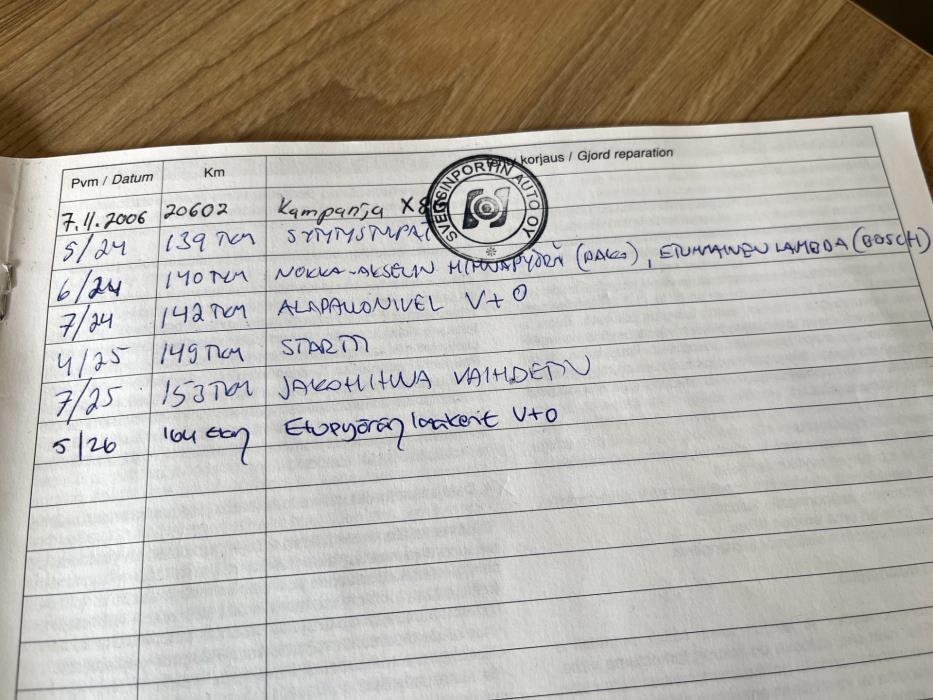 Pvm / Datum Km korjaus / Gjord reparation
SVEGSINPORTIN AUTO OY
7.11.2006 20602 Kampanja X8
5/24 139 TKM SYTYTYSTULPAT
6/24 140 TKM NOKKA-AKSELIN HIHNAPYÖRÄ (DAKO), ETUMMAINEN LAMBDA (BOSCH)
7/24 142 TKM ALAPALLONIVEL V+O
4/25 149 TKM STARTTI
7/25 153 TKM JAKOHIHNA VAIHDETTU
5/26 164 tkm Etupyörän laakerit V+O